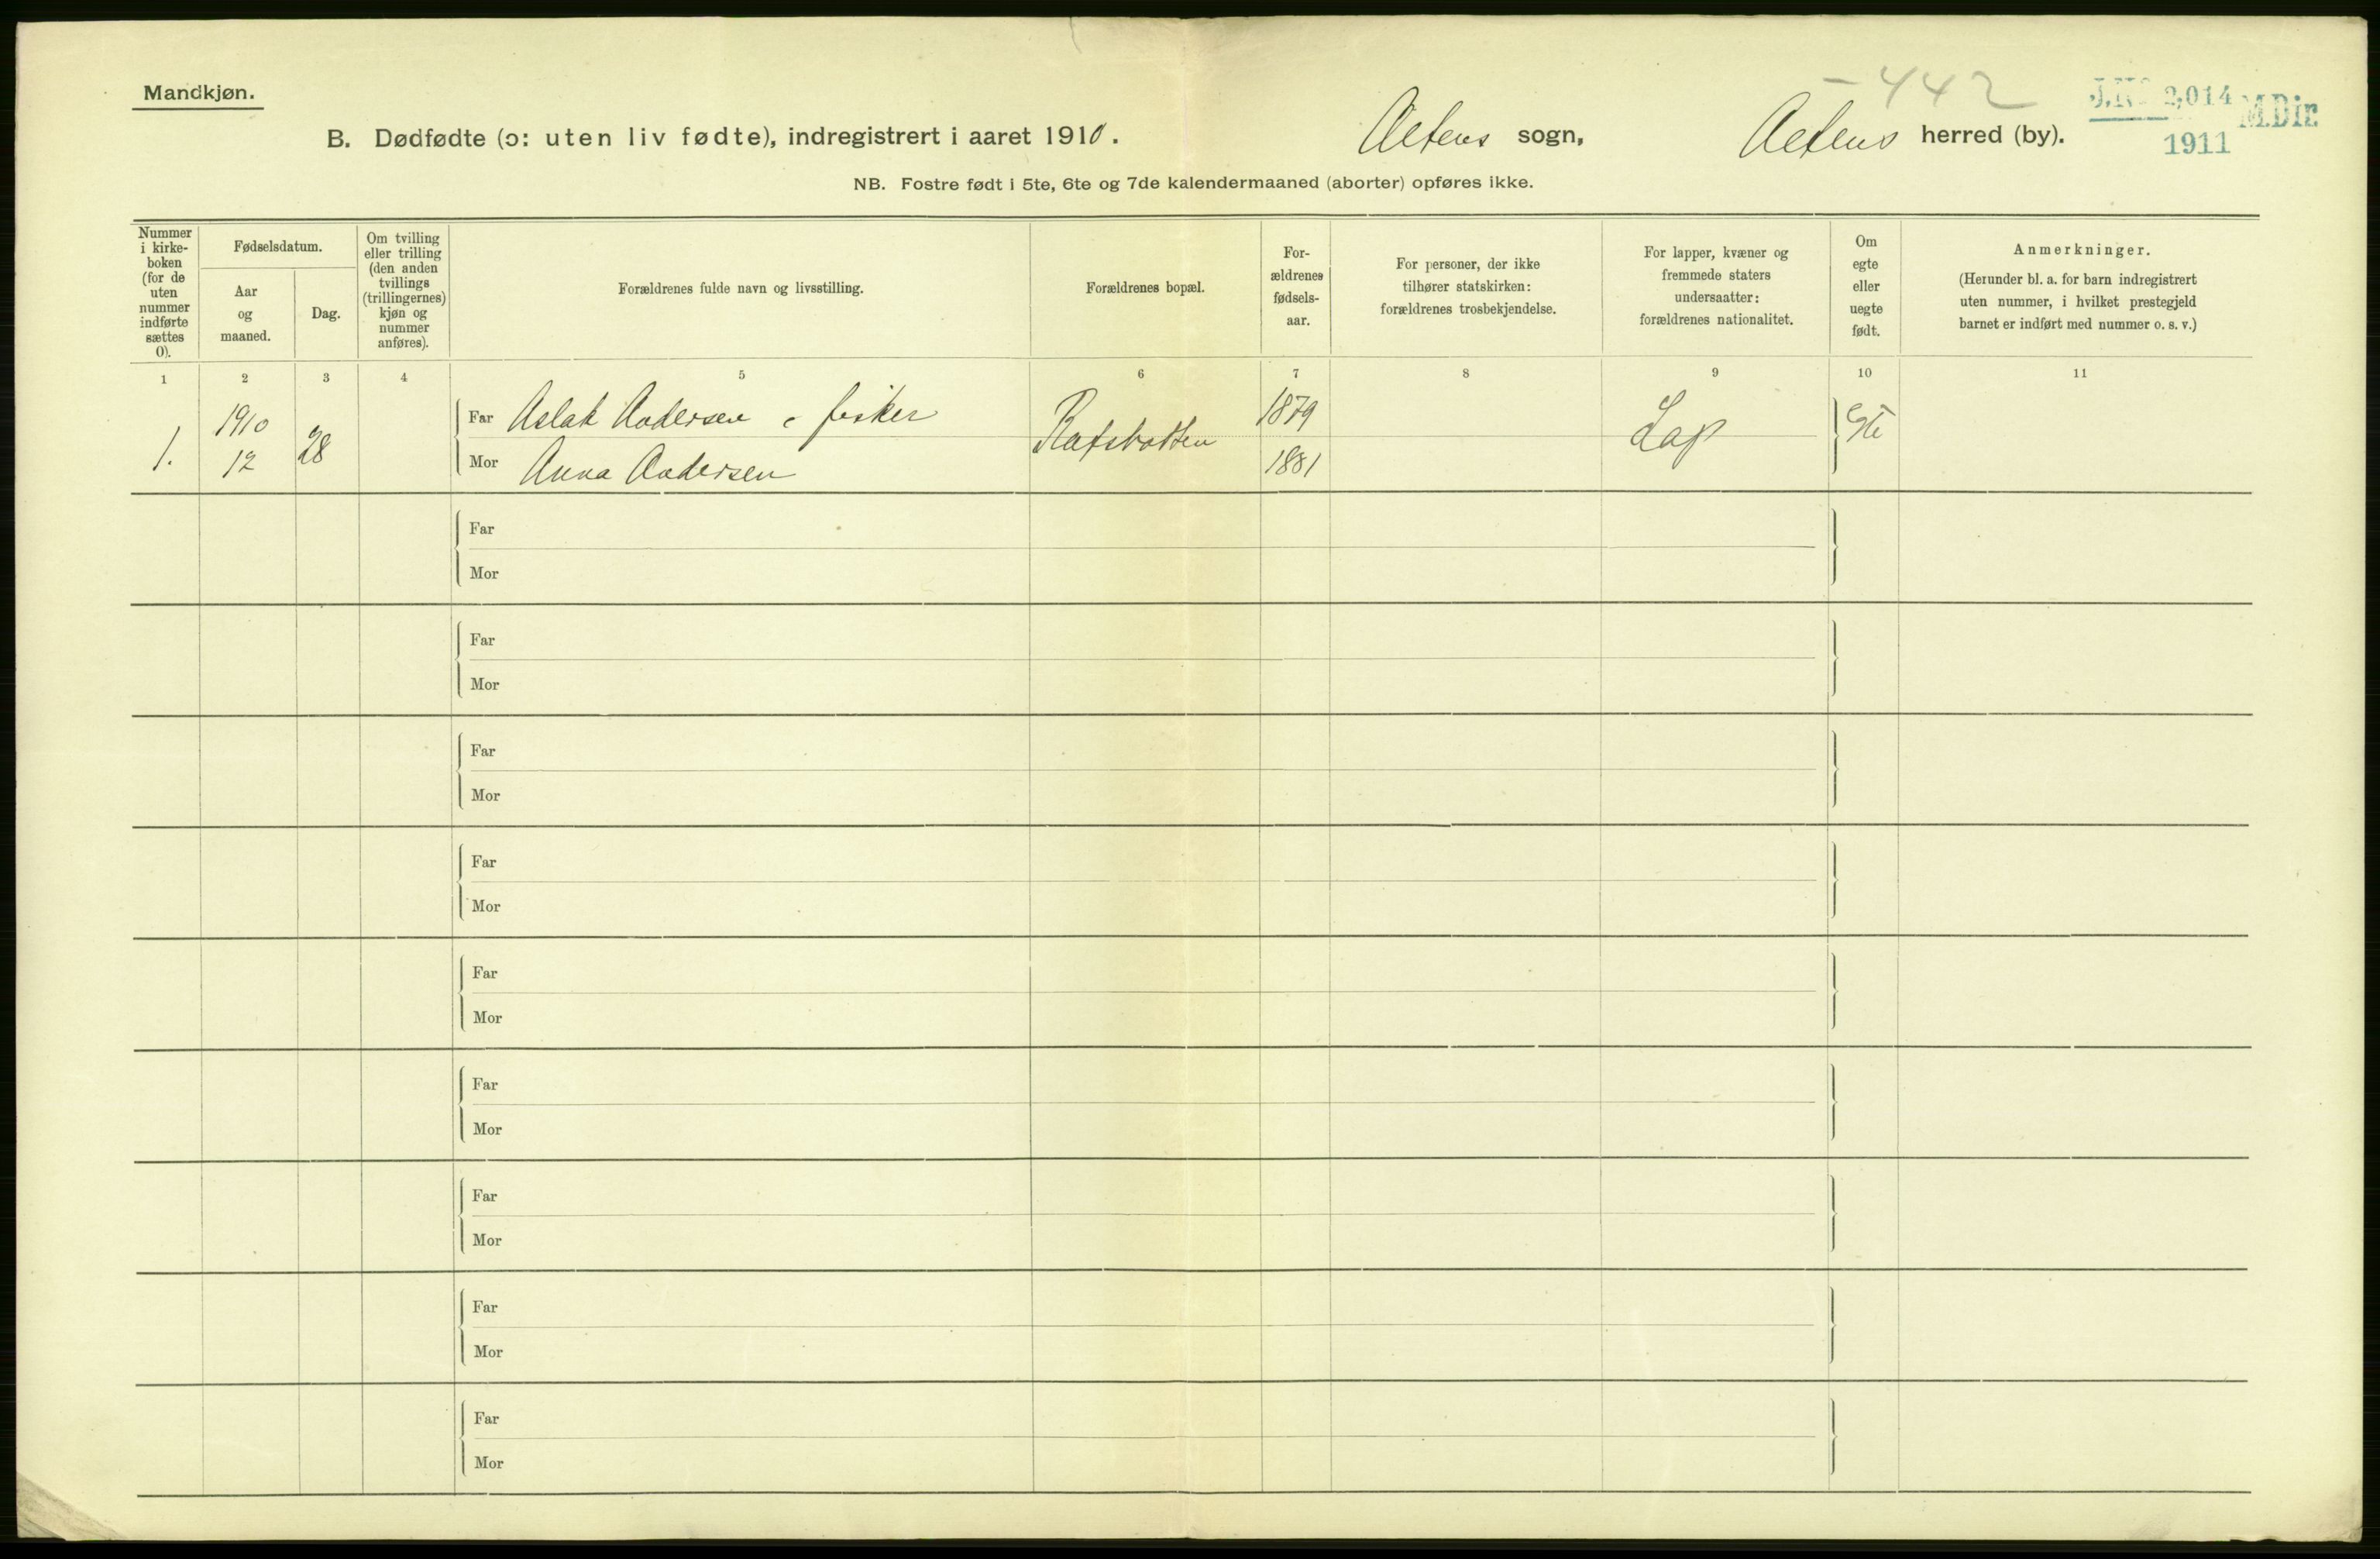 Mandkjøn.
- 442
J.No 2,014 M.Dir.
1911
B. Dødfødte (ɔ: uten liv fødte), indregistrert i aaret 1910. Altens sogn, Altens herred (by).
NB. Fostre født i 5te, 6te og 7de kalendermaaned (aborter) opføres ikke.
Nummer
i kirke-
boken
(for de
uten
nummer
indførte
sættes
0).
Fødselsdatum.
Aar
og
maaned.
Dag.
Om tvilling
eller trilling
(den anden
tvillings
(trillingernes)
kjøn og
nummer
anføres).
Forældrenes fulde navn og livsstilling.
Forældrenes bopæl.
For-
ældrenes
fødsels-
aar.
For personer, der ikke
tilhører statskirken:
forældrenes trosbekjendelse.
For lapper, kvæner og
fremmede staters
undersaatter:
forældrenes nationalitet.
Om
egte
eller
uegte
født.
Anmerkninger.
(Herunder bl. a. for barn indregistrert
uten nummer, i hvilket prestegjeld
barnet er indført med nummer o. s. v.)
1 2 3 4 5 6 7 8 9 10 11
1. 1910 12 28
Far Aslak Andersen, fisker
Mor Anna Andersen
Rafsbotten
1879
1881
Lap
Far
Mor
Far
Mor
Far
Mor
Far
Mor
Far
Mor
Far
Mor
Far
Mor
Far
Mor
Far
Mor